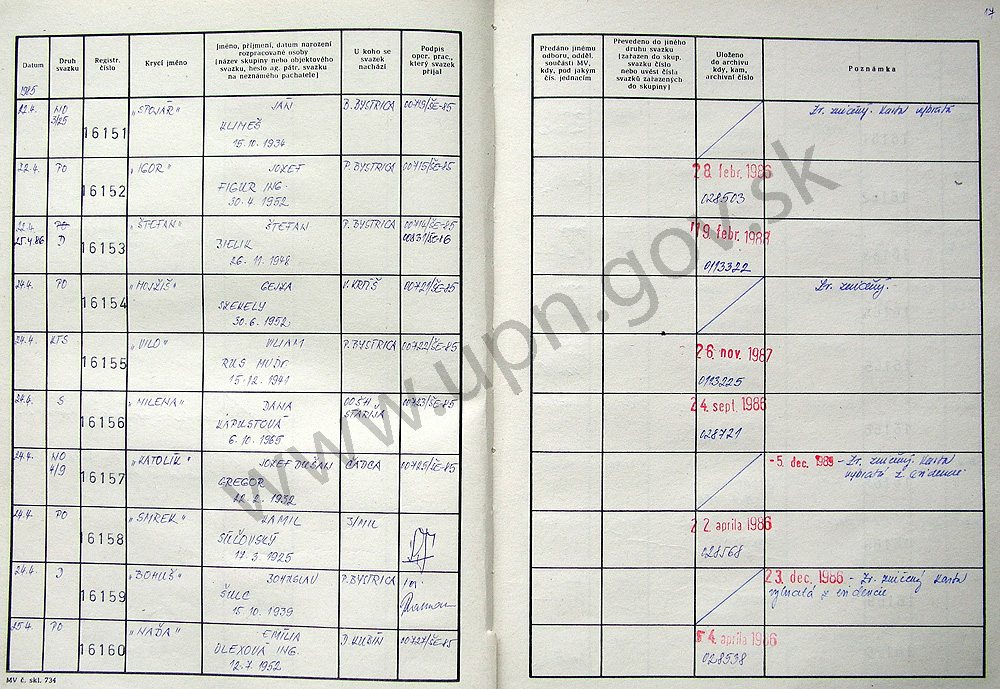 17
Datum
Druh svazku
Registr. číslo
Krycí jméno
Jméno, příjmení, datum narození rozpracované osoby (název skupiny nebo objektového svazku, heslo ag. pátr. svazku na neznámého pachatele)
U koho se svazek nachází
Podpis oper. prac., který svazek přijal
Předáno jinému odboru, odděl. součásti MV, kdy, pod jakým čís. jednacím
Převedeno do jiného druhu svazku (zařazen do skup. svazku číslo nebo uvést čísla svazků zařazených do skupiny)
Uloženo do archivu kdy, kam, archivní číslo
Poznámka
1985
22.4. NO 16151 „STOJÁR" JÁN B. BYSTRICA 00719/ŠE-85
KLIMEŠ
15.10.1934
Zv. zničený. Karta vybratá
22.4. PO 16152 „IGOR" JOZEF P. BYSTRICA 00715/ŠE-85
FIGUR ING.
30.4.1952
28. febr. 1986
028503
22.4. PO 16153 „ŠTEFAN" ŠTEFAN P. BYSTRICA 00714/ŠE-85
25.4.86 D
BIELIK
26.11.1948
19. febr. 1988
0113322
24.4. PO 16154 „MOJŽIŠ" GEJZA V. KRTÍŠ 00721/ŠE-85
SZEKELY
30.6.1952
Zv. zničený.
24.4. KTS 16155 „VILO" VILIAM P. BYSTRICA 00722/ŠE-85
RUS MUDr
15.12.1941
26. nov. 1987
0113225
24.4. S 16156 „MILENA" DANA 00723/ŠE-85
STARINA
KAPUSTOVÁ
6.10.1965
24. sept. 1986
028721
24.4. NO 16157 „KATOLÍK" JOZEF DUŠAN ČADCA 00725/ŠE-85
4/9
GREGOR
-5. dec. 1989 - Zv. zničený. Karta
vybratá z evidencie
24.4. PO 16158 „SMREK" KAMIL
17.3.1925
22. apríla 1986
028568
24.4. D 16159 „BOHUŠ" BOHUSLAV P. BYSTRICA
ŠULC
15.10.1939
23. dec. 1986 - Zv. zničený Karta
vybratá z evidencie
25.4. PO 16160 „NAĎA" EMÍLIA D. KUBÍN 00727/ŠE-85
OLEXOVÁ ING.
12.7.1952
4. apríla 1986
028538
MV č. skl. 734
www.upn.gov.sk